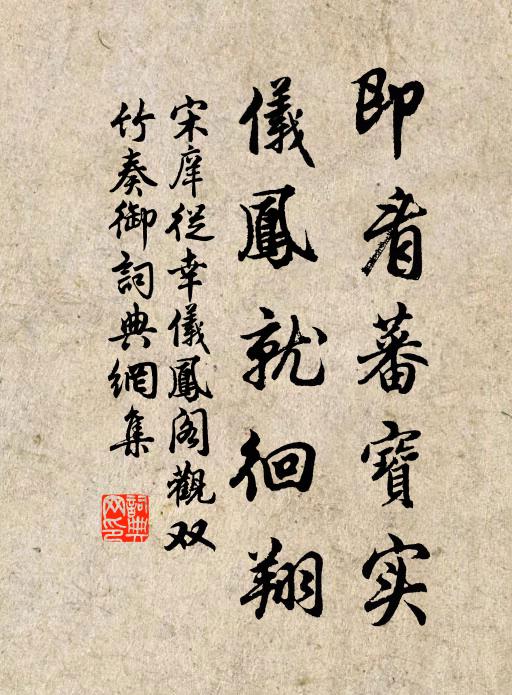 即看蕃寶实
儀鳳就徊翔
宋庠從幸儀鳳阁觀双
竹奏御詞典網集
詞典网印